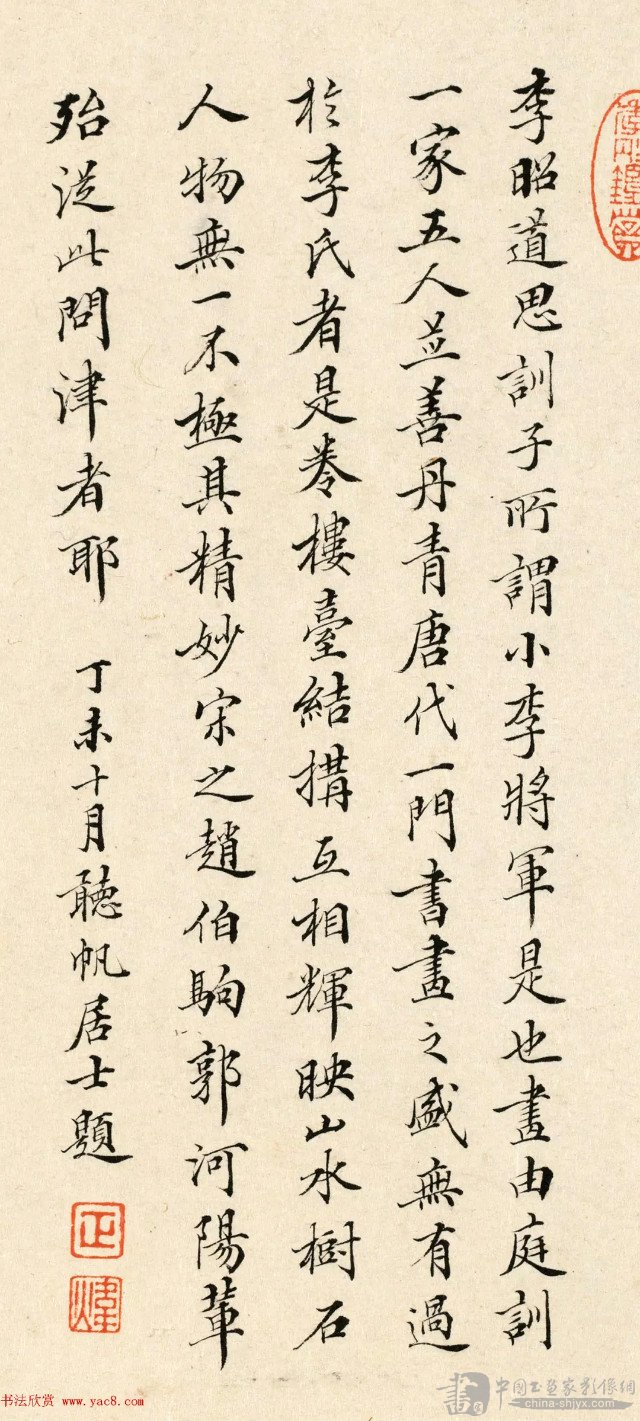 李昭道思訓子所謂小李將軍是也畫由庭訓
一家五人並善丹青唐代一門書畫之盛無有過
於李氏者是卷樓臺結搆互相輝映山水樹石
人物無一不極其精妙宋之趙伯駒郭河陽輩
殆從此問津者耶 丁未十月聽帆居士題
正煒
书法欣赏 www.yac8.com
中国书画家影像網
china-shjyx.com